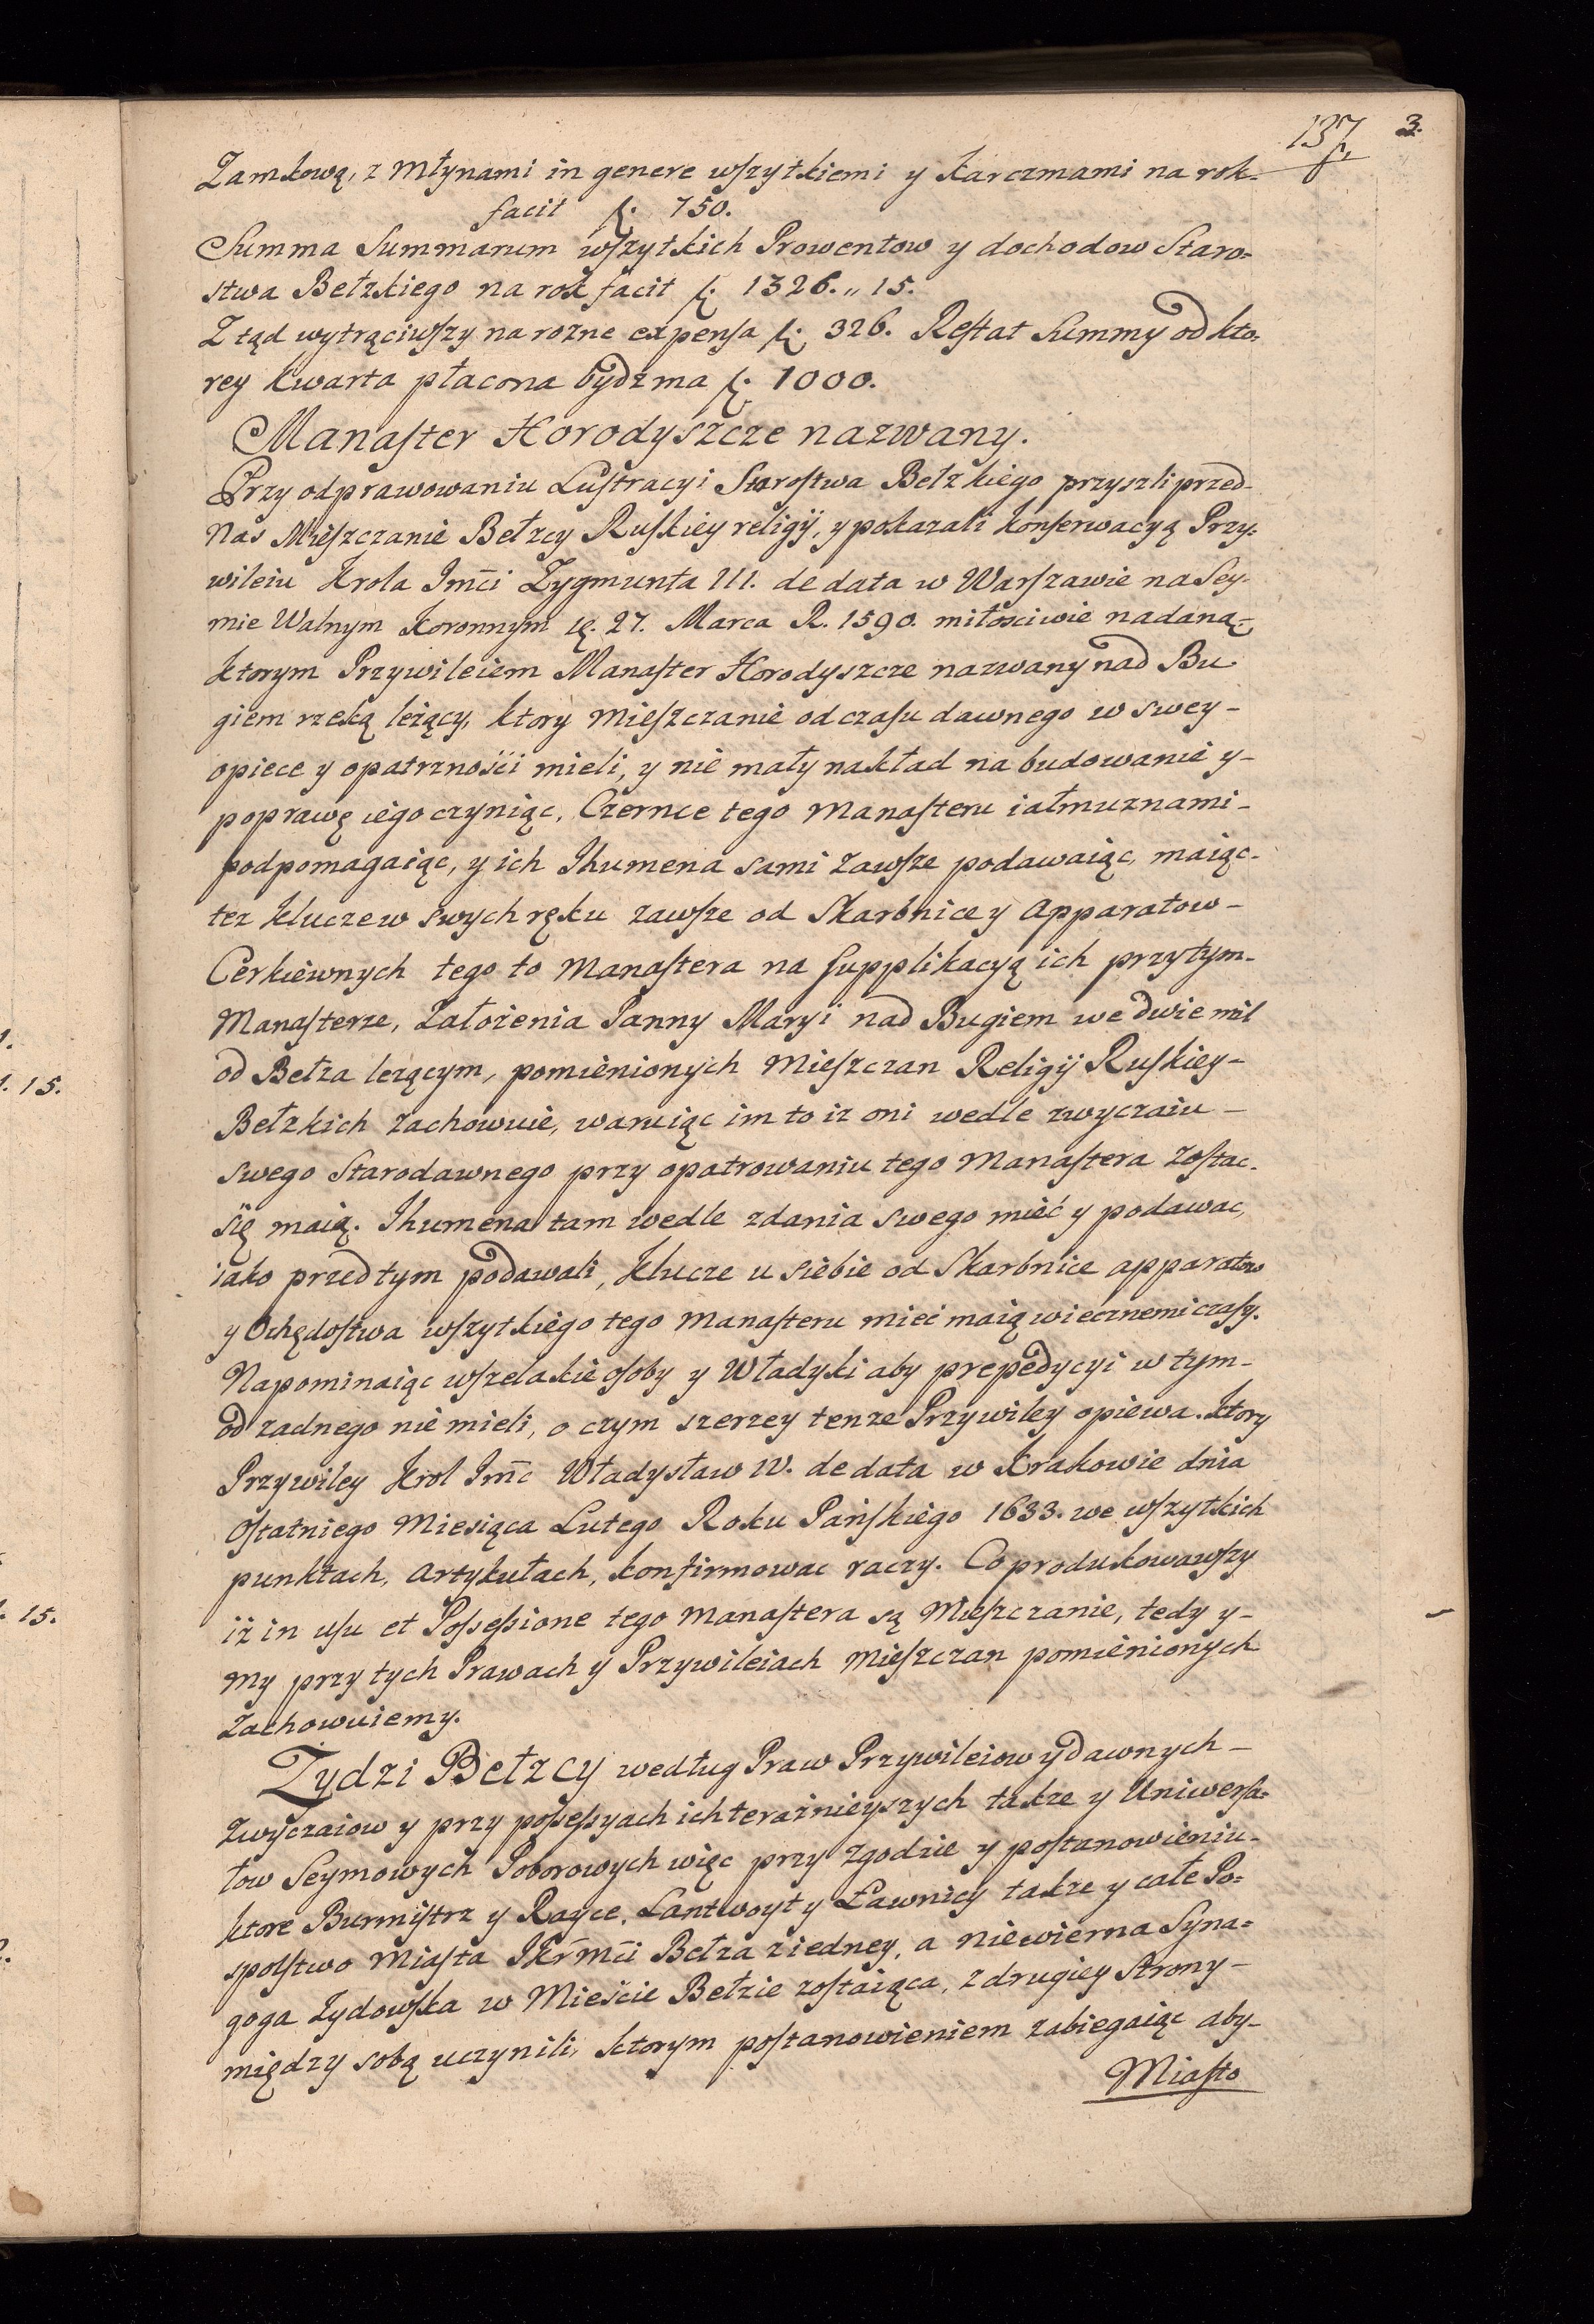 137 3.
Zamkową, z Młynami in genere wszytkiemi y Karczmami na rok-
facit f. 750.
Summa Summarum wszytkich Prowentow y dochodow Staro=
stwa Bełzkiego na rok facit f. 1326.,, 15.
Z tąd wytrąciwszy na rozne expensa f. 326. Restat Summy od kto=
rey kwarta płacona bydz ma f. 1000.
Manaster Horodyszcze nazwany.
Przy odprawowaniu Lustracyi Starostwa Bełzkiego przyszli przed-
Nas Mieszczanie Bełzcy Ruskiey religij, y pokazali konserwacyą Przy=
wileiu Krola Jmci Zygmunta III. de data w Warszawie na Sey-
mie Walnym Koronnym 27. Marca R. 1590. miłosciwie nadaną-
ktorym Przywileiem Manaster Horodyszcze nazwany nad Bu
giem rzeką leżący, ktory Mieszczanie od czasu dawnego w swey-
opiece y opatrznosci mieli, y nie mały nakład na budowanie y-
poprawę iego czyniąc, Czernce tego Manasteru iałmuznami-
podpomagaiąc, y ich Ihumena sami zawsze podawaiąc, maiąc-
tez klucze w swych ręku zawsze od Skarbnice y Apparatow-
Cerkiewnych tego to Manastera na supplikacyą ich przy tym-
Manasterze, Założenia Panny Maryi nad Bugiem we dwie mil
od Bełza leżącym, pomienionych Mieszczan Religij Ruskiey-
Bełzkich zachowuie, waruiąc im to iz oni wedle zwyczaiu-
swego Starodawnego przy opatrowaniu tego Manastera zostac-
się maią. Ihumena tam wedle zdania swego mieć y podawac,
iako przed tym podawali, Klucze u siebie od Skarbnice apparatow
y Ochędostwa wszytkiego tego Manasteru miec maią wiecznemi czasy.
Napominaiąc wszelakie osoby y Władyki aby prepedycyi w tym-
od zadnego nie mieli, o czym szerzey tenze Przywiley opiewa. Ktory
Przywiley Krol Jmc Władysław IV. de data w Krakowie dnia
Ostatniego Miesiąca Lutego Roku Pańskiego 1633. we wszytkich
punktach, Artykułach, konfirmowac raczy. Co produkowawszy
iż in usu et Possessione tego Manastera są Mieszczanie, tedy y-
My przy tych Prawach y Przywileiach Mieszczan pomienionych
Zachowuiemy.
Zydzi Bełzcy według Praw Przywileiow y dawnych-
Zwyczaiow y przy possessyach ich teraźnieyszych takze y Uniwersa=
łow Seymowych Poborowych więc przy Zgodzie y postanowieniu-
ktore Burmistrz y Rayce, Lantwoyt y Ławnicy takze y całe Po=
spolstwo Miasta JKrMci Bełza z iedney, a niewierna Syna=
goga Zydowska w Mieście Bełzie zostaiąca, z drugiey Strony-
między sobą uczynili, ktorym postanowieniem zabiegaiąc aby-
Miasto
15.
15.